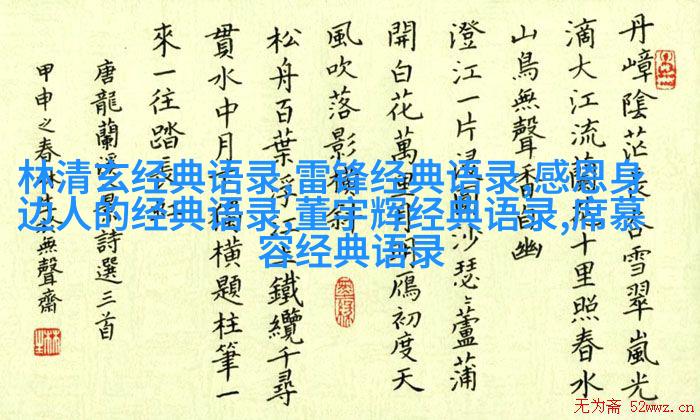 丹嶂陰茫谷雪翠嵐光
滴大江流蘭十里照春水
山鳥無聲自幽
澄江一片浸圓沙瑟〻蘆蒲
開白花萬里鴈初度天
風吹落影橫
松舟百葉浮鐵纜千尋
貫水中月獨橫題柱筆一
來一往踏長
唐龍蘭溪景詩選三首
甲申之春林無聲齋
林清玄经典语录,雷锋经典语录,感恩身
边人的经典语录,董宇辉经典语录,席慕
容经典语录
无为斋 52wwz.cn